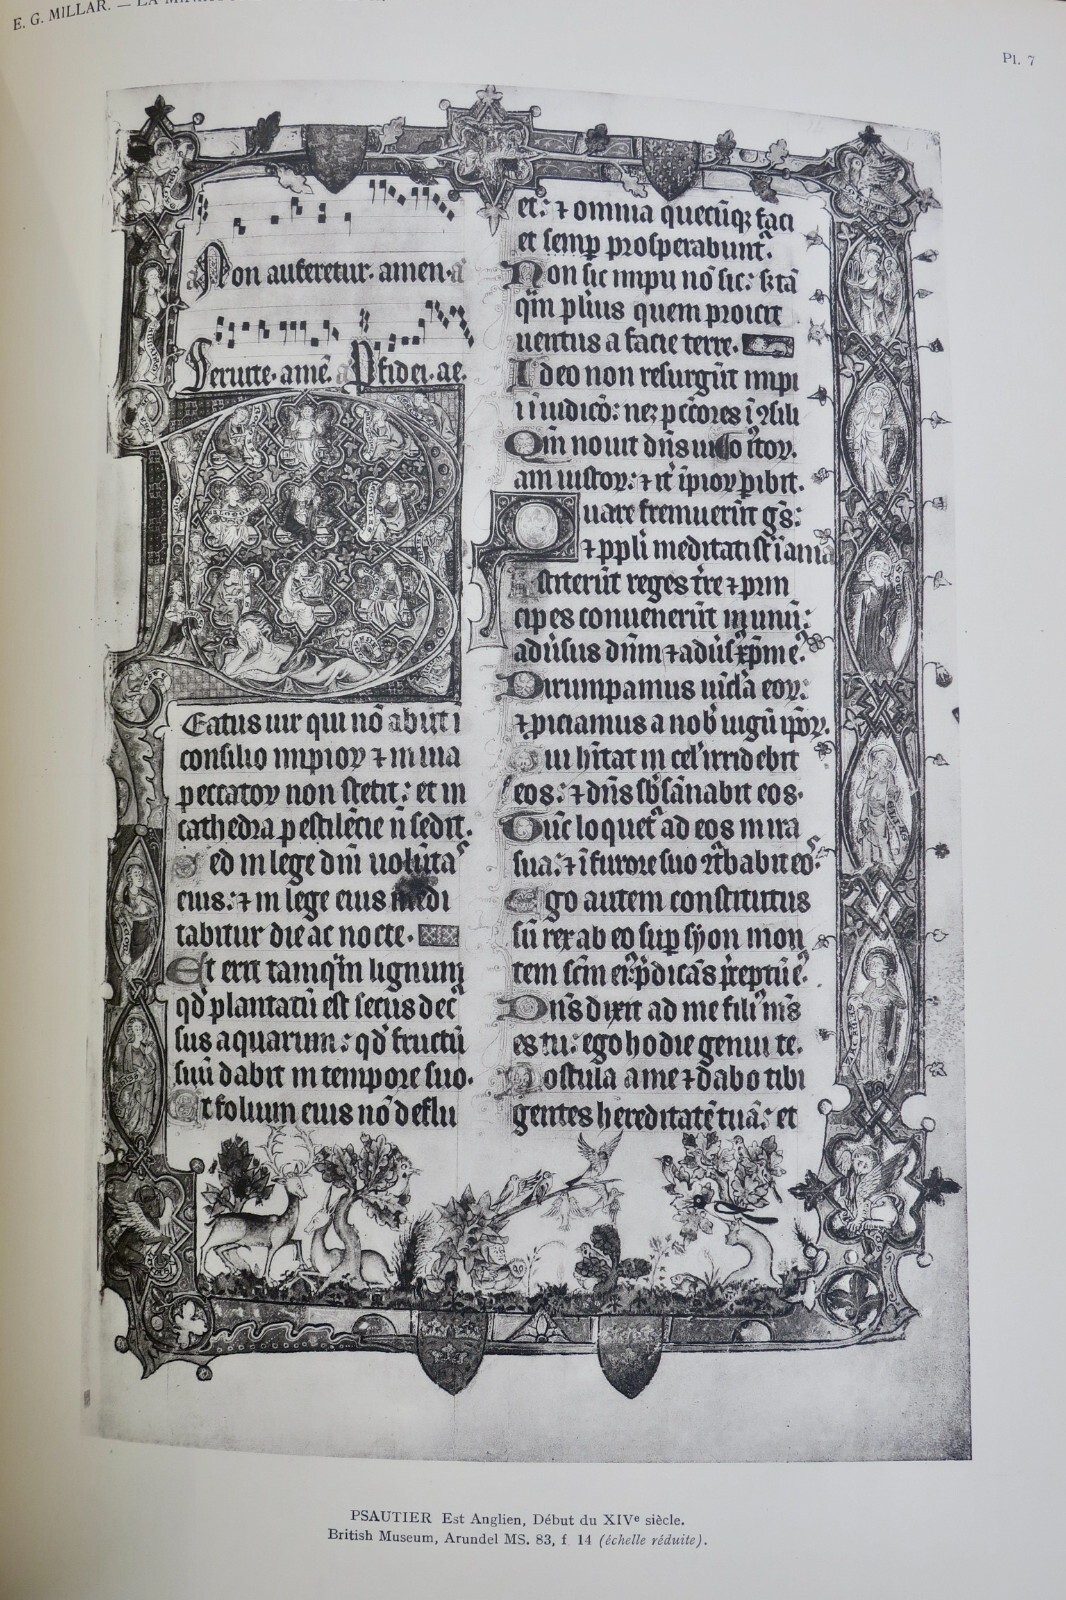 E. G. MILLAR. — LA
Pl. 7
Non auferetur. amen. a
Serutte. amē. a fidei. ae.
Eatus uir qui nō abiit i
consilio impioꝝ ⁊ in uia
peccatoꝝ non stetit: et in
cathedra pestilēcie ñ sedit.
Sed in lege dn̄i uolūtaꝰ
eius: ⁊ in lege eius medi
tabitur die ac nocte.
Et erit tamq̄m lignum
qđ plantatū est secus decꝰ
sus aquarum: qđ fructū
suū dabit in tempore suo.
Et folium eius nō deflu
et: ⁊ omnia quecūqꝫ faci
et semꝑ prosperabuntᷣ.
Non sic impii nō sic: s; tā
q̄m pl̄uis quem proicit
uentus a facie terre.
Ideo non resurgūt impi
i i iudicō: neꝫ pctōres i ꝯsili
Qm̄ nouit dn̄s iustoꝝ.
am iustoꝝ: ⁊ it̄ ip̄ioꝝ ꝑibit.
Quare fremuerūt gs̄:
⁊ ppl̄i meditati st̄ iania
Astiterūt reges tr̄e ⁊ prin
cipes conuenerūt in unū:
adūsus dn̄m ⁊ adūs xp̄m eꝰ.
Dirumpamus uicl̄a eoꝝ:
⁊ piciamus a nob̄ iugū ip̄oꝝ.
Qui hīta
t in cel̓ irridebit
eos: ⁊ dn̄s sb̄sānabit eos.
Tūc loquetᷣ ad eos in ira
sua: ⁊ i furore suo ꝯt̄babit eoˢ.
Ego autem constitutus
sū rex ab eo suꝑ syon mon
tem sc̄m eiꝰ p̄dicās p̄ceptū eꝰ.
Dn̄s dixit ad me filiꝰ mˢ
es tu: ego hodie genui te.
Postula a me ⁊ dabo tibi
gentes hereditatē tuā: et
PSAUTIER Est Anglien, Début du XIVe siècle.
British Museum, Arundel MS. 83, f. 14 (échelle réduite).